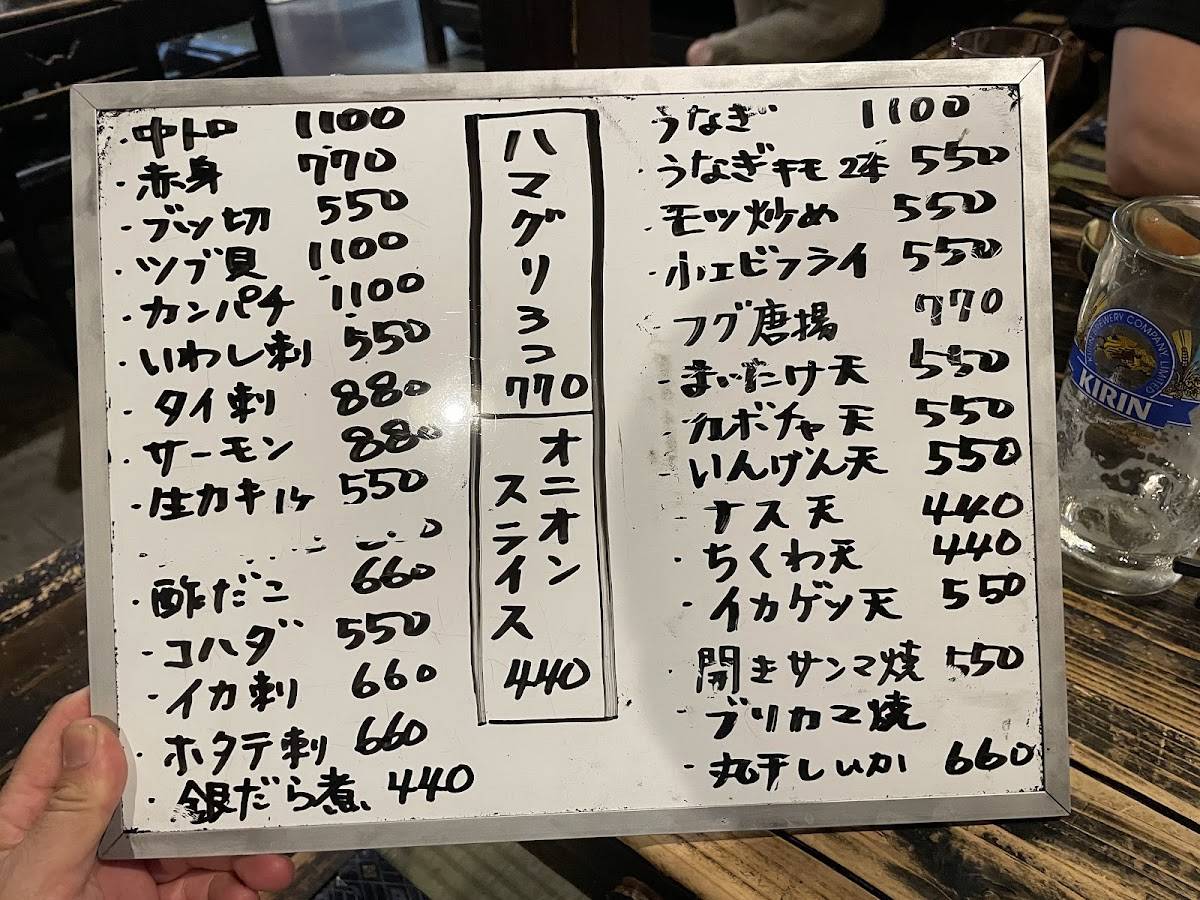 ・中トロ 1100
・赤身 770
・ブツ切 550
・ツブ貝 1100
・カンパチ 1100
・いわし刺 550
・タイ刺 880
・サーモン 880
・生カキ 1ケ 550
・酢だこ 660
・コハダ 550
・イカ刺 660
・ホタテ刺 660
・銀だら煮 440
ハマグリ3コ
770
オニオン
スライス
440
うなぎ 1100
・うなぎキモ 2本 550
モツ炒め 550
・小エビフライ 550
フグ唐揚 770
・まいたけ天 550
・カボチャ天 550
・いんげん天 550
・ナス天 440
・ちくわ天 440
・イカゲソ天 550
・開きサンマ焼 550
・ブリカマ焼
・丸干しいか 660
BREWERY COMPANY LIMITED
KIRIN